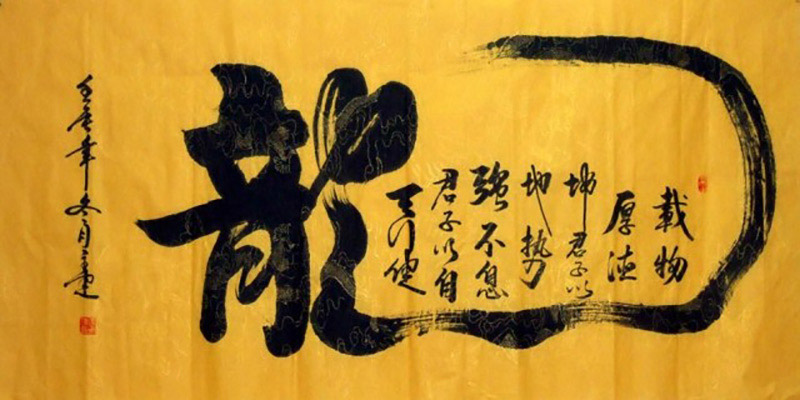 龍
天行健
君子以自
強不息
地势
坤君子以
厚德
載物
冬月